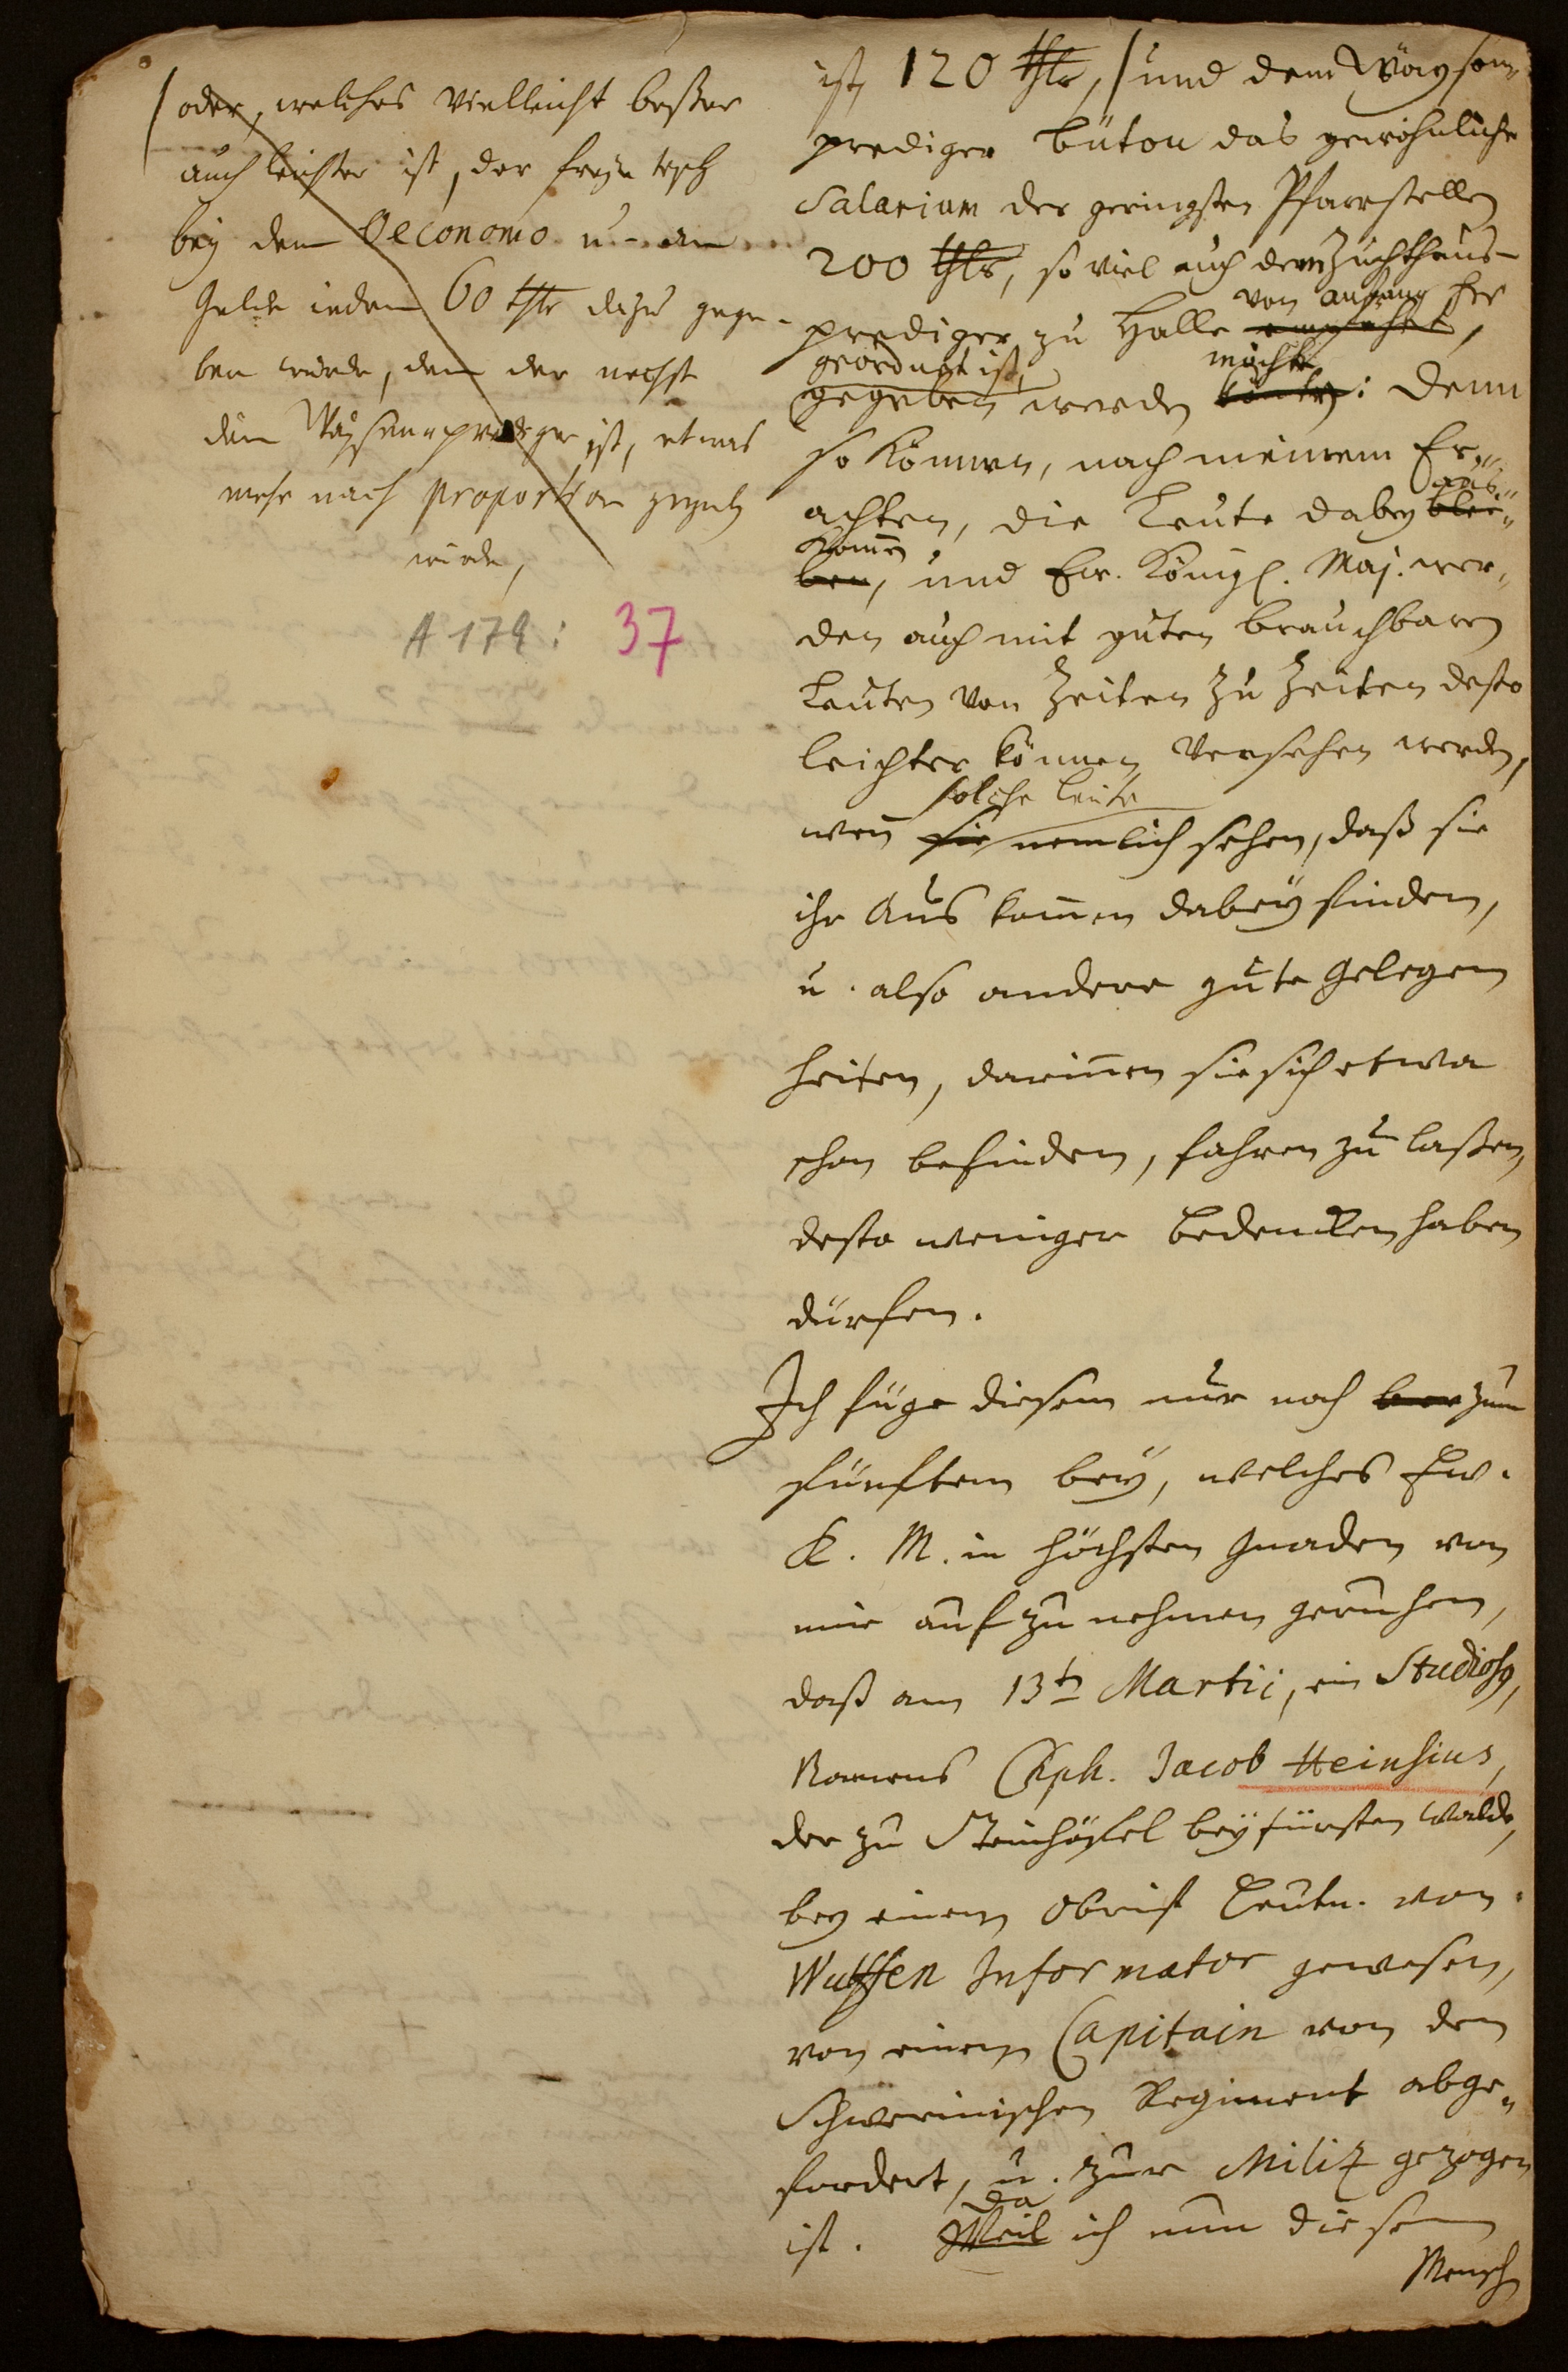 oder, welches vielleicht beßer
auch leichter ist, der freye tisch
bey dem Oeconomo u. an
Gelde iedem 60 thlr dazu gege-
ben würde, dem der nechst
dem Waysenprediger ist, etwas
mehr nach proportion gegeben
würde,
A 179: 37
ist, 120 thlr, / und dem Waysen-
prediger Büton das gewöhnliche
Salarium der geringsten Pfarrstellen
200 thlr, so viel auch dem Zuchthaus-
von anfang her
prediger zu Halle empfähet,
geordnet ist, möchte
gegeben werden könte: denn
so können, nach meinem Er-
aus-
achten, die Leute dabey blei-
kommen
ben, und Ew. Königl. Maj. wer-
den auch mit guten brauchbaren
Leuten von Zeiten zu Zeiten desto
leichter können versehen werden,
solche Leute
wenn sie nemlich sehen, daß sie
ihr Auskommen dabey finden,
u. also andere gute Gelegen
heiten, darinnen sie sich etwa
schon befinden, fahren zu laßen,
desto weniger Bedencken haben
dürfen.
Ich füge diesem nur noch zum
fünften bey, welches Ew.
K. M. in höchsten Gnaden von
mir auf zu nehmen geruhen,
daß am 13t Martii, ein Studiosus,
Namens Chph. Jacob Heinsius,
der zu Steinhöffel bey Fürstenwalde,
bey einem Obrist Leutn. von
Wulffen Informator gewesen,
von einem Capitain von dem
Schwerinischen Regiment abge-
fordert, u. zur Miliz gezogen
da
ist. Weil ich nun diesen
Mensch